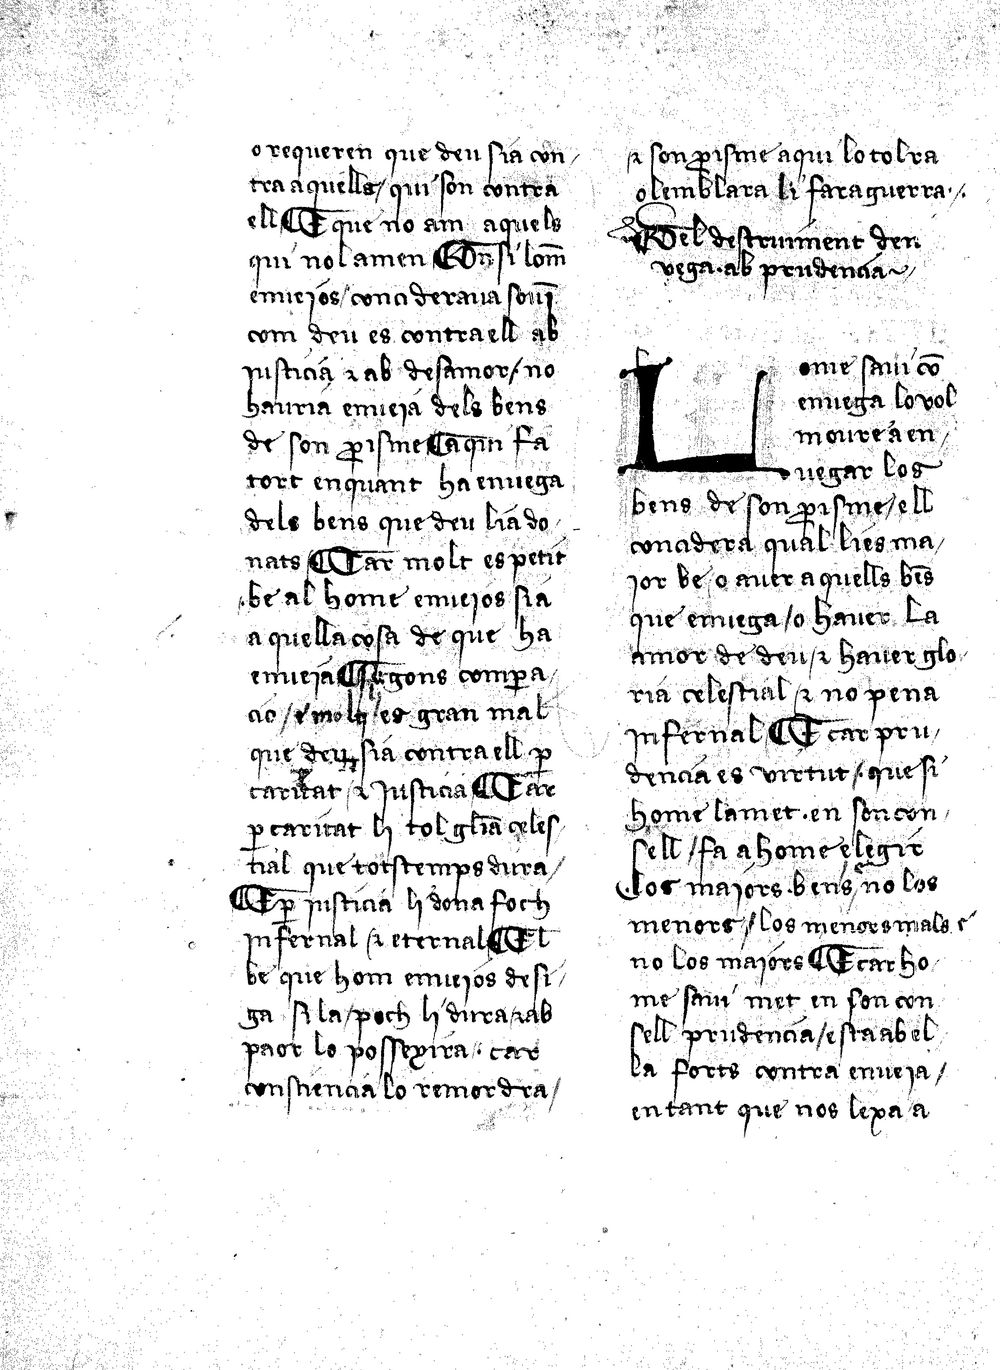 o requeren que deu sia con/
tra aquells/ qui son contra
ell E que no am aquels
qui nol amen On si lom̄
enueios/ concideraua souī
com deu es contra ell ab
justicia ⁊ ab desamor/ no
hauria enueia dels bens
de son ꝓisme E aqui fa
tort enquant ha enuega
dels bens que deu lia do/
nats Car molt es petit
be al home enueios sia
aquella cosa de que ha
enueia Segons compa/
cio/ e molt es gran mal
que deu sia contra ell ꝑ
caritat ⁊ Justicia Car
ꝑ caritat li tol glīa celes/
tial que totstemps dura/
E ꝑ justicia li dona foch
jnfernal ⁊ eternal El
be que hom enueios desi/
ga si la/ poch li dura ⁊ ab
paor lo possexira. car
consciencia lo remordra/
⁊ son ꝓisme aqui lo tolra
o lemblara li fara guerra./.
Del destruiment den
vega. ab prudencia
Lome saui cō
enuega lo vol
moure a en/
uegar los
bens de son ꝓisme/ ell
concidera qual lies ma/
jor be/ o auer aquells bēs
que enuega/ o hauer La
amor de deu/ ⁊ hauer glo/
ria celestial ⁊ no pena
jnfernal E car pru/
dencia es virtut/ que si
home la met. en son con/
sell/ fa a home elegir
los majors. bens/ no los
menors/ los menors mals e
no los majors E car ho/
me saui met en son con
sell prudencia/ esta ab el
la forts contra enueia/
en tant que nos lexa a